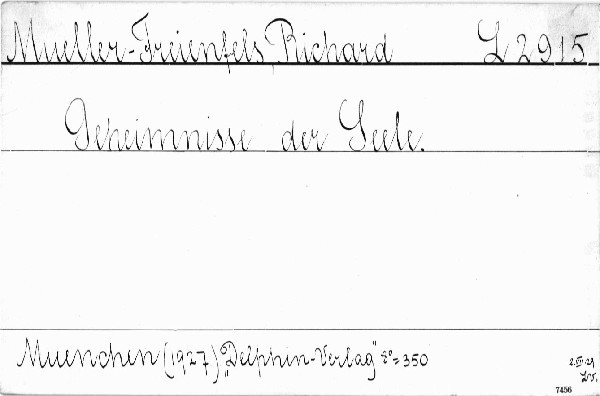 Mueller-Freienfels Richard L 2915
Geheimnisse der Seele.
Muenchen (1927) „Delphin-Verlag" 8°= 350
7456